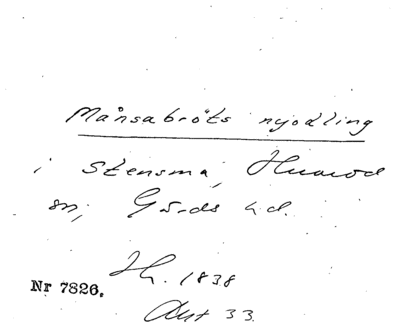 Månsabröts nyodling
i Stensma, Huaröd
sn, Gärds hd.
H. 1838
Nr 7826.
Akt 33.